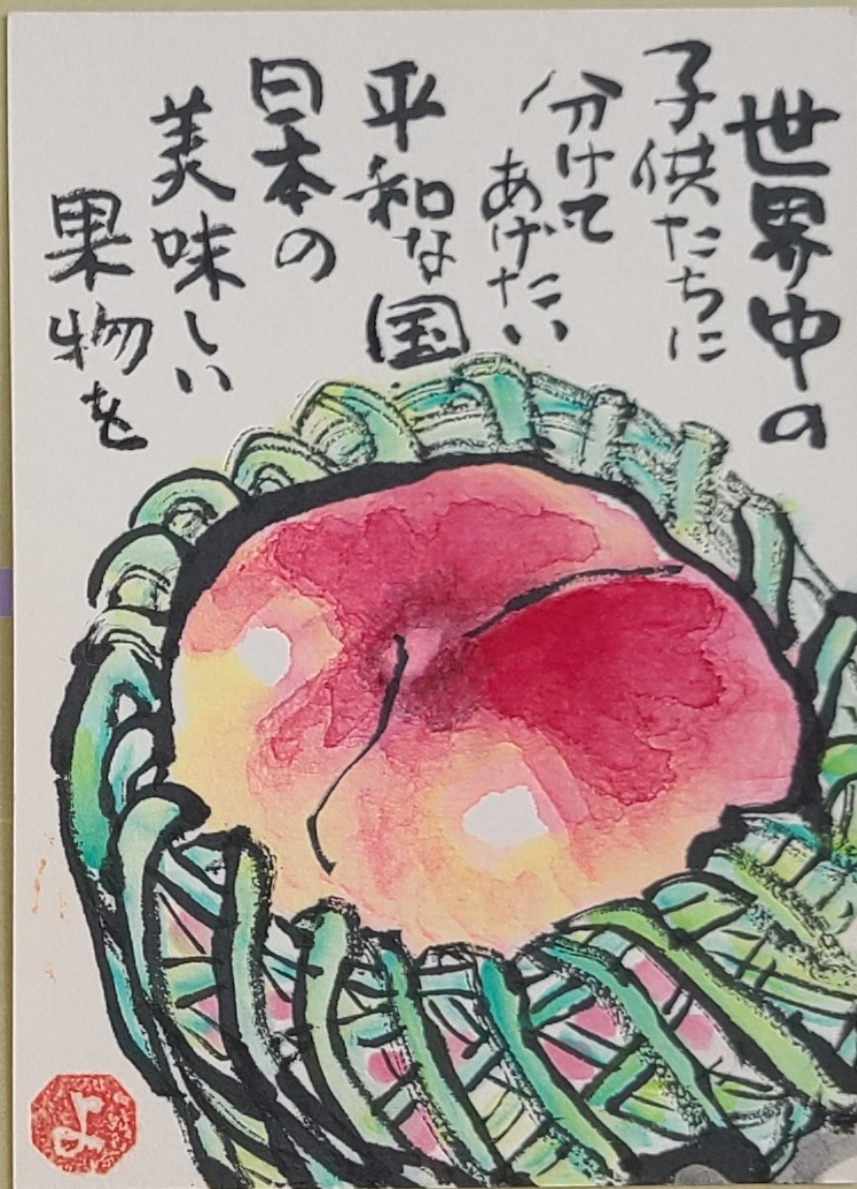 世界中の
子供たちに
分けて
あげたい
平和な国
日本の
美味しい
果物を
よ